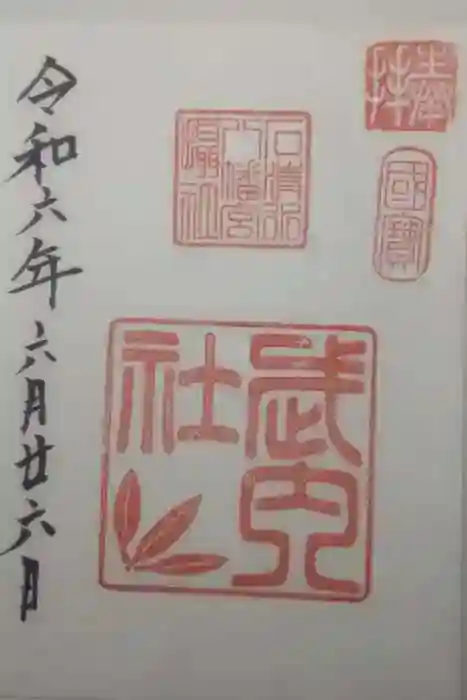 奉拝
國寶
石清水
八幡宮
攝社
武内
社
令和六年六月廿六日